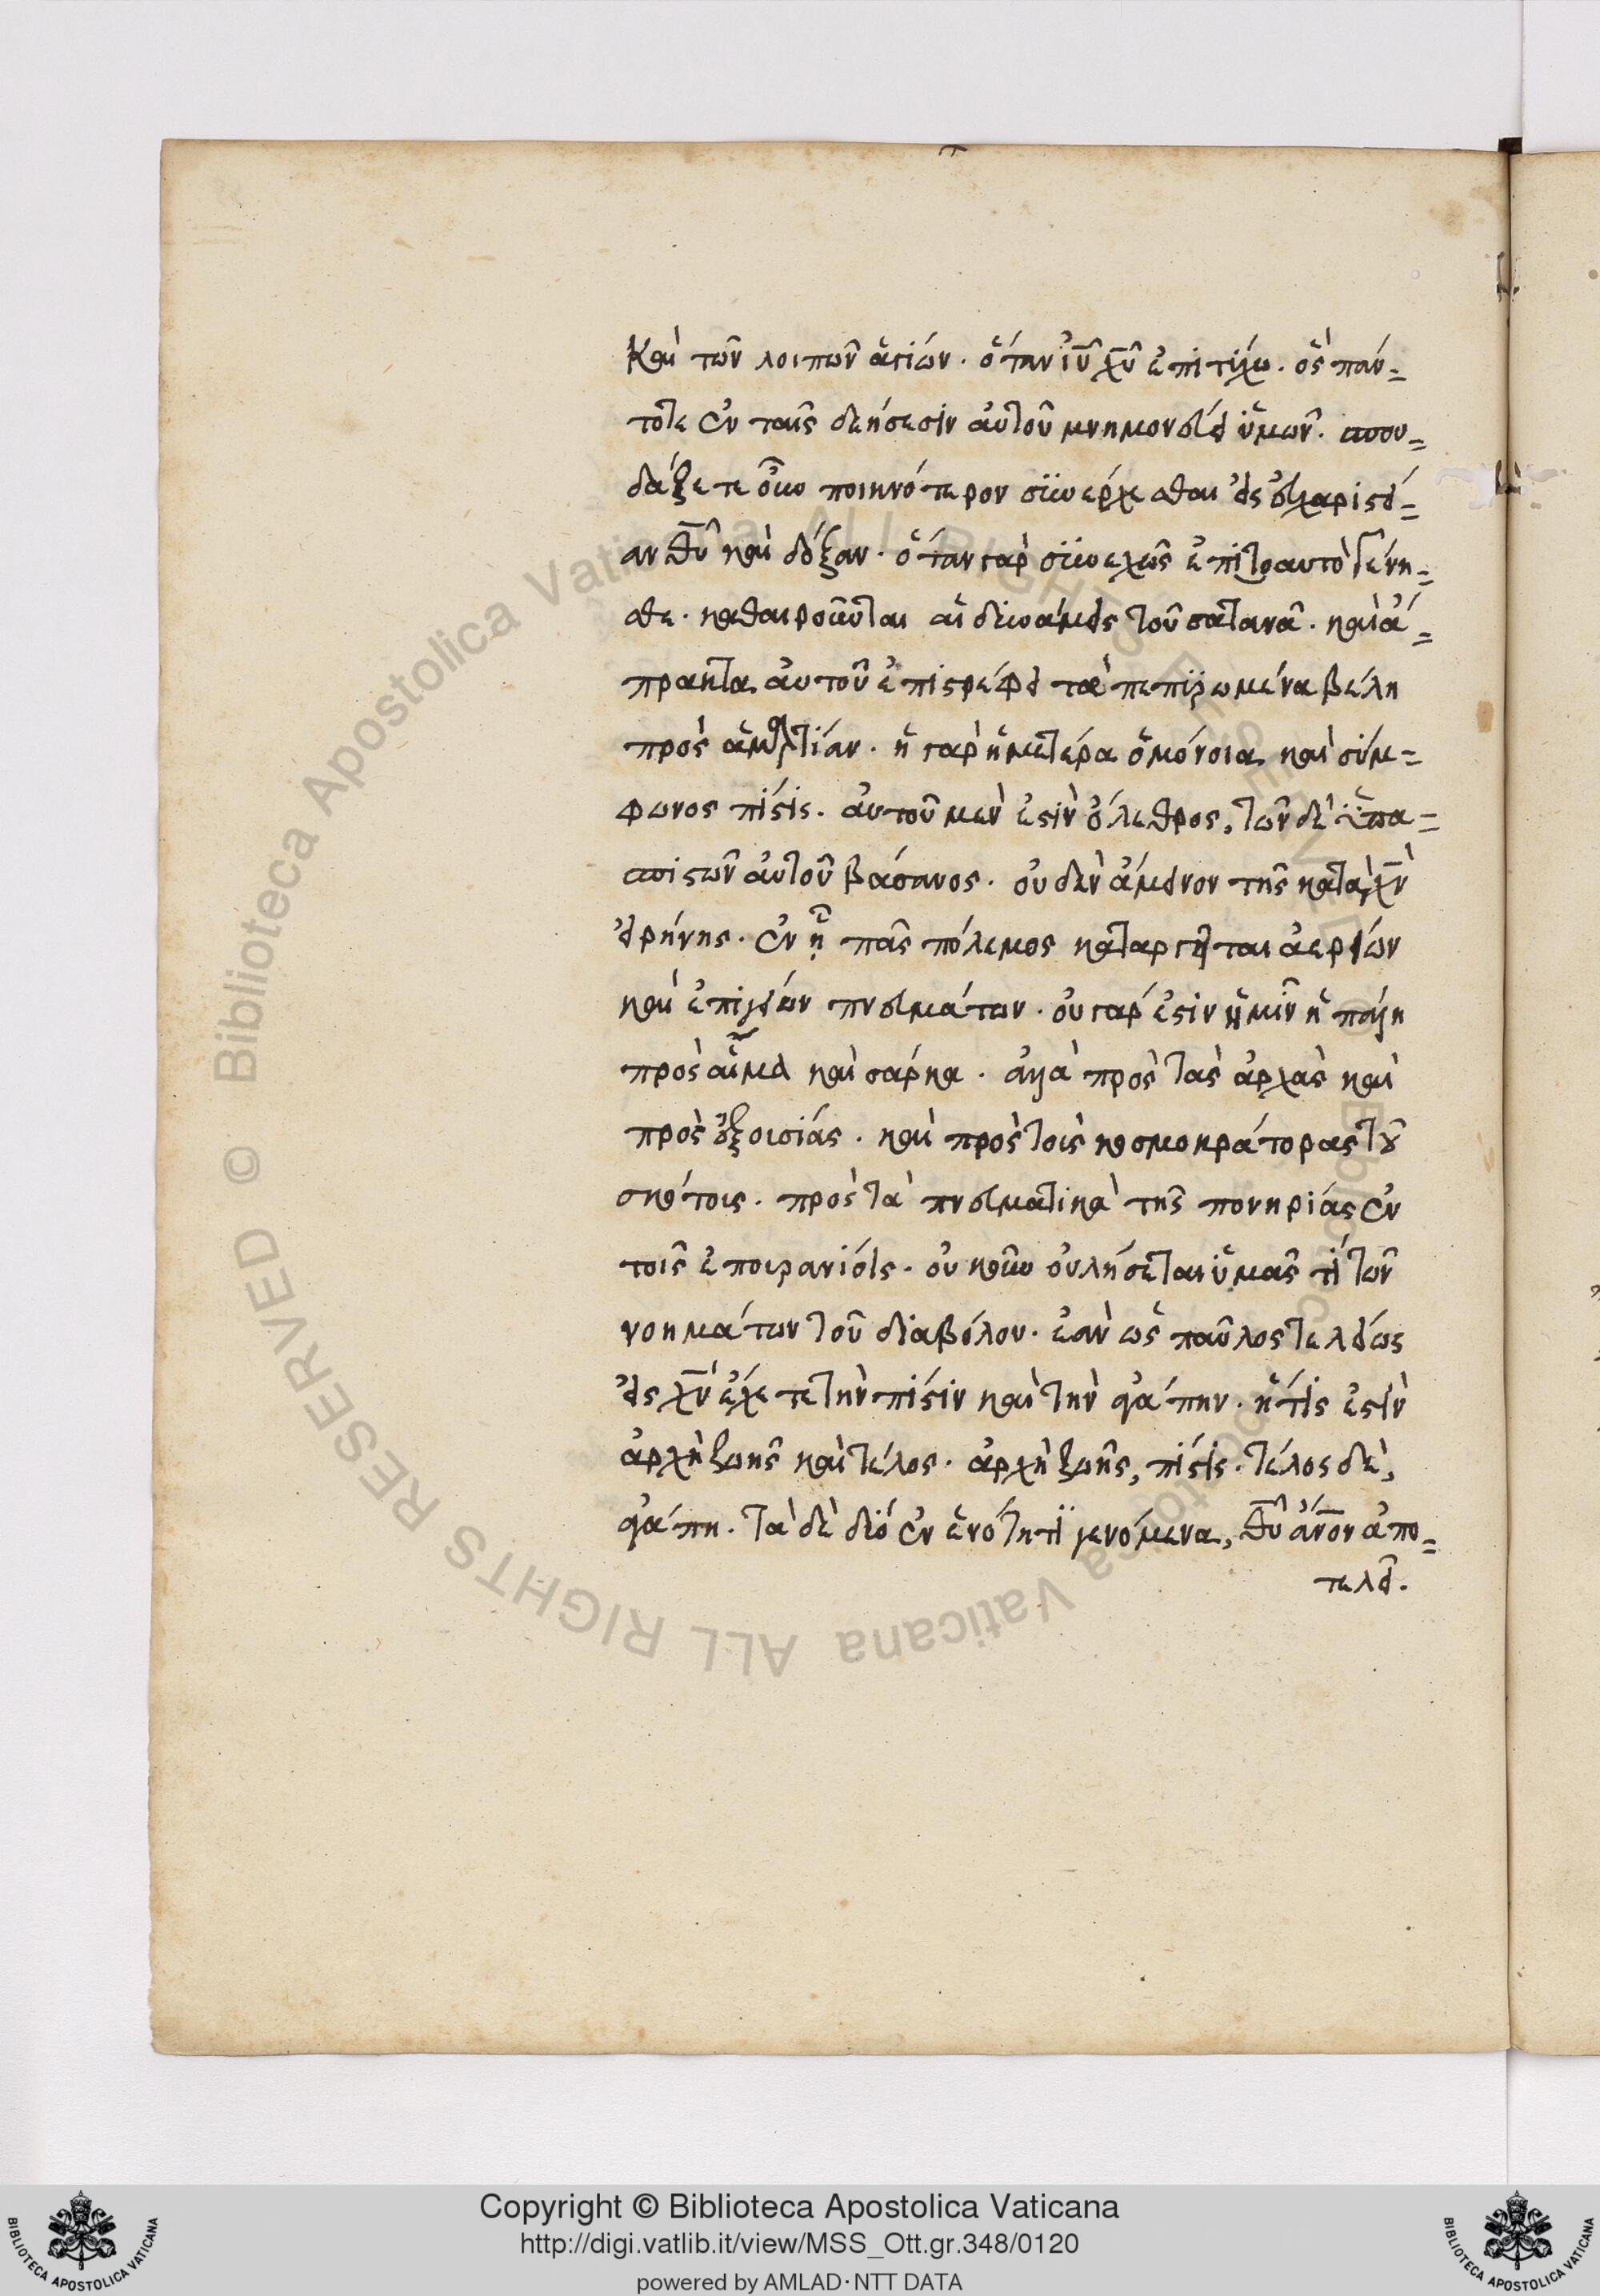 Καὶ τῶν λοιπῶν ἁγίων. ὅταν ἰῦ χῦ ἐπιτύχω. ὃς πάν=
τοτε ἐν ταῖς δεήσεσιν αὐτοῦ μνημονεύει ὑμῶν. σπου=
δάζετε οὖν πυκνότερον συνέρχεσθαι εἰς εὐχαριστί=
αν θῦ καὶ δόξαν. ὅταν γὰρ συνεχῶς ἐπιτοαυτὸ γένη=
σθε. καθαιροῦνται αἱ δυνάμεις τοῦ σατανᾶ. καὶ ἄ=
πρακτα αὐτοῦ ἐπιστρέφει τὰ πεπυρωμένα βέλη
πρὸς ἁμαρτίαν. ἡ γὰρ ἡμετέρα ὁμόνοια καὶ σύμ=
φωνος πίστις. αὐτοῦ μὲν ἐστὶν ὄλεθρος, τῶν δὲ ὑπα=
σπιστῶν αὐτοῦ βάσανος. οὐδὲν ἄμεινον τῆς κατὰ χν̄
εἰρήνης. ἐν ᾗ πᾶς πόλεμος καταργεῖται ἀερίων
καὶ ἐπιγείων πνευμάτων. οὐ γάρ ἐστιν ἡμῖν ἡ πάλη
πρὸς αἷμα καὶ σάρκα. ἀλλὰ πρὸς τὰς ἀρχὰς καὶ
πρὸς ἐξουσίας. καὶ πρὸς τοὺς κοσμοκράτορας τοῦ
σκότους. πρὸς τὰ πνευματικὰ τῆς πονηρίας ἐν
τοῖς ἐπουρανίοις. οὐκοῦν οὐ λήσεται ὑμᾶς τί τῶν
νοημάτων τοῦ διαβόλου. ἐὰν ὡς παῦλος τελείως
εἰς χν̄ ἔχετε τὴν πίστιν καὶ τὴν ἀγάπην. ἥτις ἐστὶν
ἀρχὴ ζωῆς καὶ τέλος. ἀρχὴ ζωῆς, πίστις. τέλος δὲ,
ἀγάπη. τὰ δὲ δύο ἐν ἑνότητι γενόμενα, θῦ ἄνον ἀπο=
τελεῖ.
© Biblioteca Apostolica Vaticana ALL RIGHTS RESERVED © Biblioteca Apostolica Vaticana ALL RIGHTS RESERVED
Copyright © Biblioteca Apostolica Vaticana
http://digi.vatlib.it/view/MSS_Ott.gr.348/0120
powered by AMLAD·NTT DATA
BIBLIOTECA APOSTOLICA VATICANA
BIBLIOTECA APOSTOLICA VATICANA